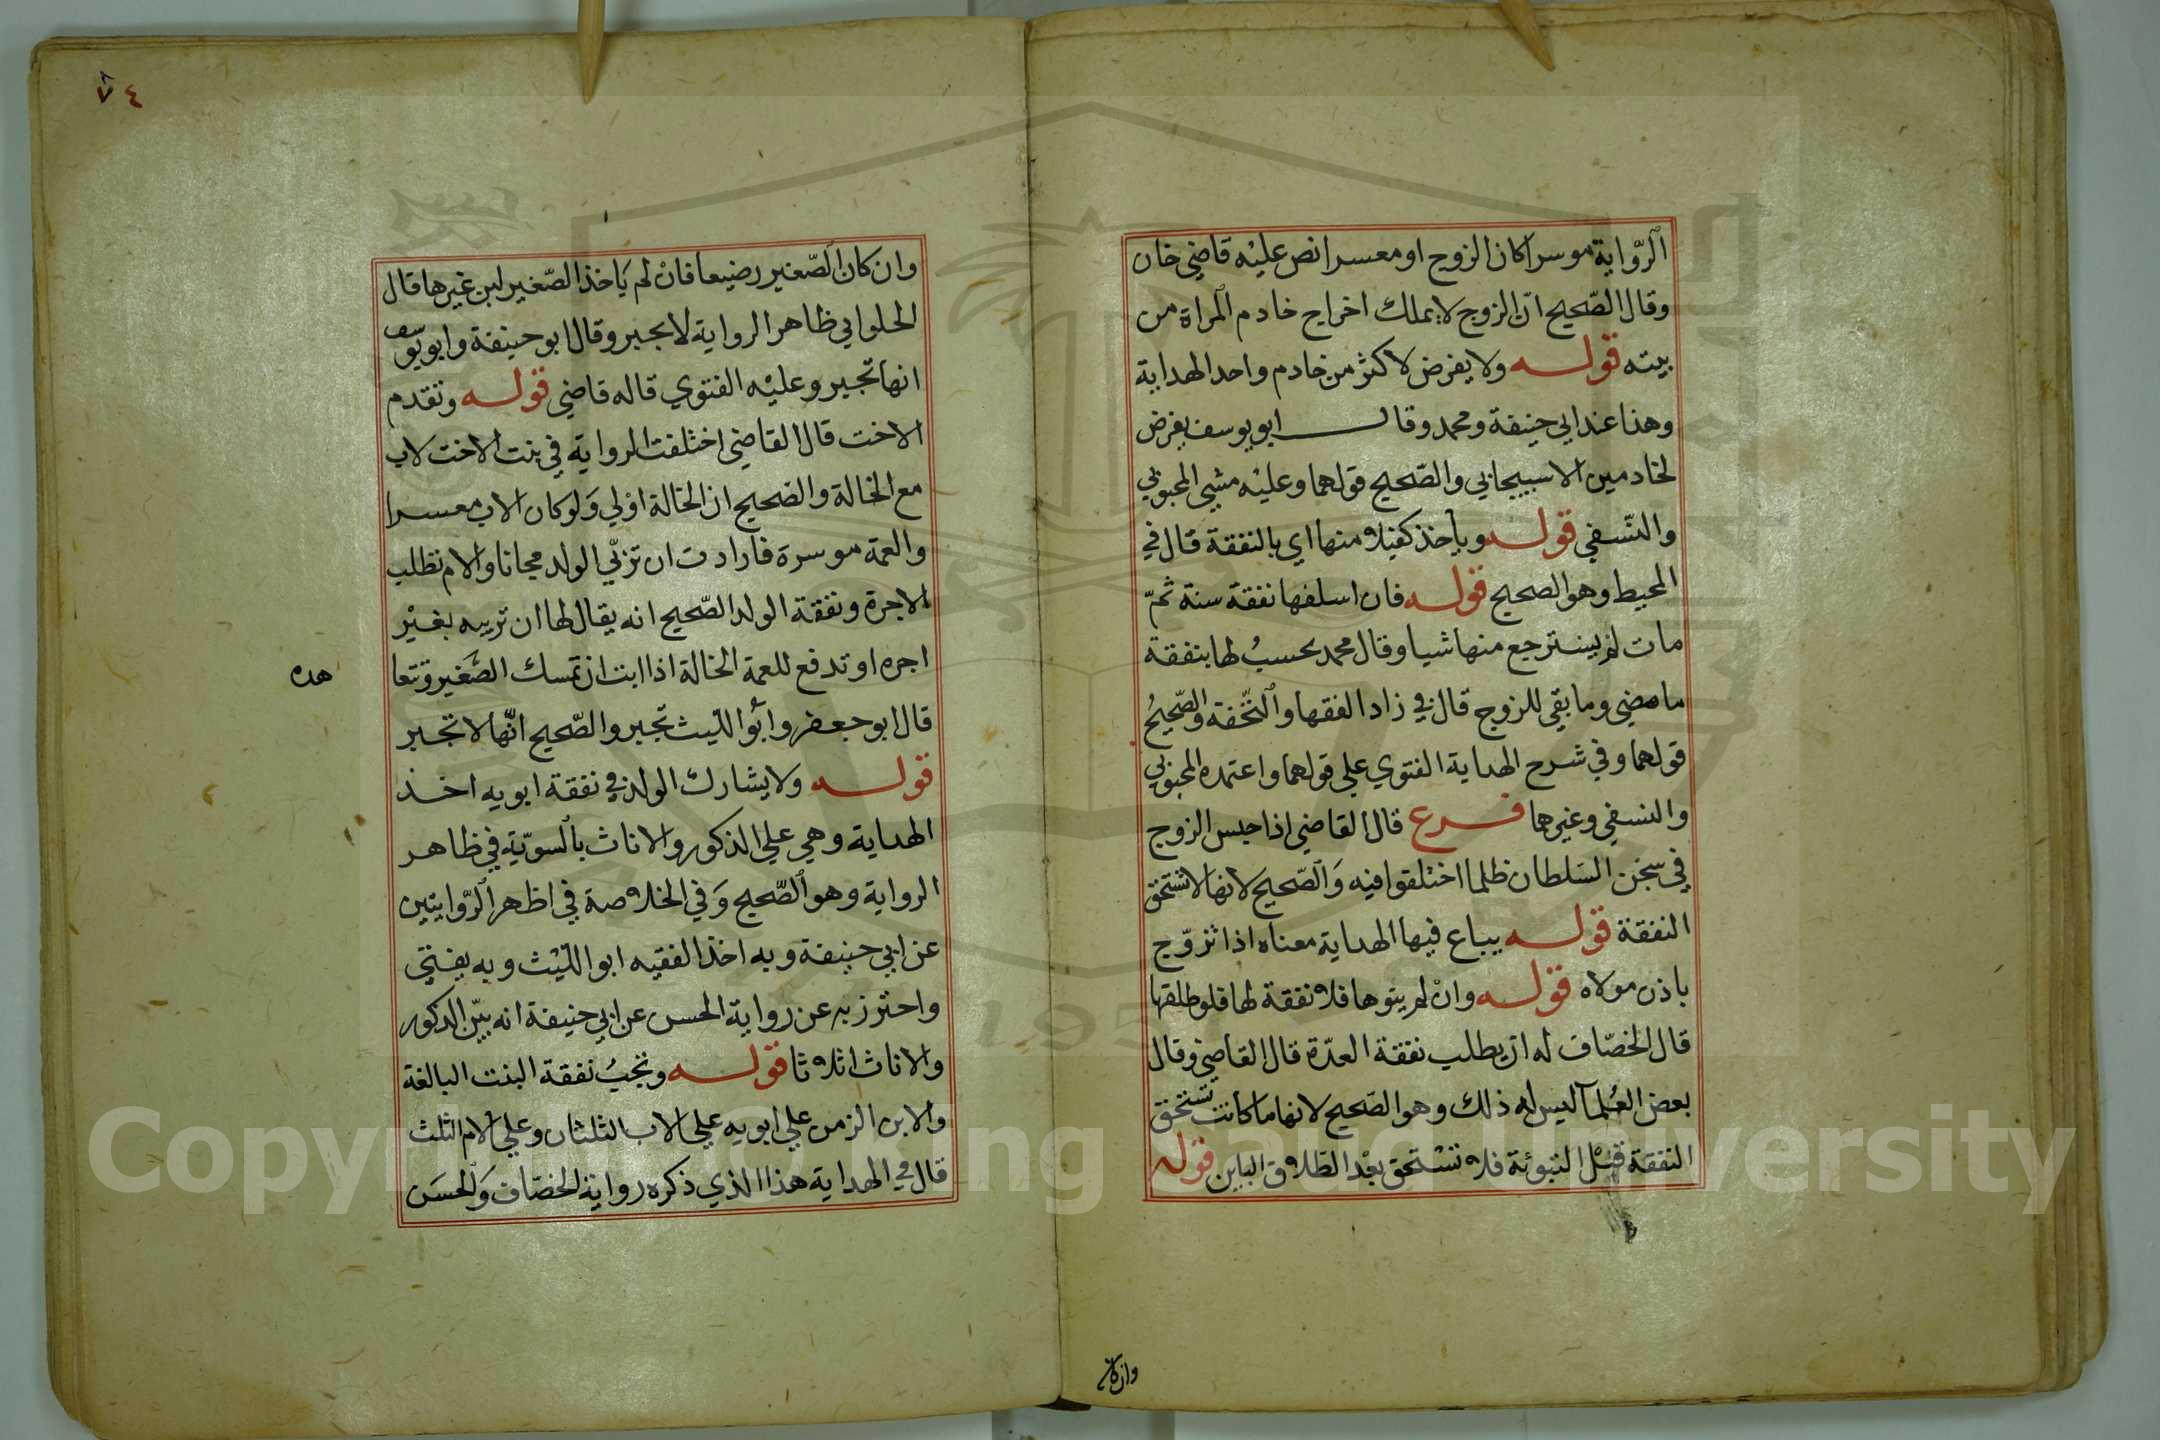 الرواية موسرا كان الزوج او معسرا نص عليه قاضي خان
وقال الصحيح ان الزوج لا يملك اخراج خادم المراة من
بيته قوله ولا يفرض لاكثر من خادم واحد الهداية
وهذا عند ابي حنيفة ومحمد وقال ابو يوسف يفرض
لخادمين الاسبيجابي والصحيح قولهما وعليه مشي المحبوبي
والنسفي قوله وياخذ كفيلا منها اي بالنفقة قال في
المحيط وهو الصحيح قوله فان اسلفها نفقة سنة ثم
مات لم يسترجع منها شيا وقال محمد يحسب لها بنفقة
ما مضي وما بقي للزوج قال في زاد الفقها والتحفة والصحيح
قولهما وفي شرح الهداية الفتوي علي قولهما واعتمده المحبوبي
والنسفي وغيرهما فرع قال القاضي اذا حبس الزوج
في سجن السلطان ظلما اختلفوا فيه والصحيح لانها لا تستحق
النفقة قوله يباع فيها الهداية معناه اذا تزوج
باذن مولاه قوله وان لم يبوها فلا نفقة لها فلو طلقها
قال الخصاف له ان يطلب نفقة العدة قال القاضي وقال
بعض العلمآ ليس له ذلك وهو الصحيح لانها ما كانت تستحق
النفقة قبل التبوئة فلا تستحق بعد الطلاق الباين قوله
وان كان
٧٤
وان كان الصغير رضيعا فان لم ياخذ الصغير لبن غيرها قال
الحلواني ظاهر الرواية لا يجبر وقال ابو حنيفة وابو يوسف
انها تجبر وعليه الفتوي قاله قاضي قوله وتقدم
الاخت قال القاضي اختلفت الرواية في بنت الاخت لاب
مع الخالة والصحيح ان الخالة اولي ولو كان الاب معسرا
والعمة موسرة فارادت ان تربي الولد مجانا والام تطلب
الاجرة ونفقة الولد الصحيح انه يقال لها ان تربيه بغير
اجره او تدفع للعمة الخالة اذا ابت ان تمسك الصغير وتتعا
هده
قال ابو جعفر وابو الليث تجبر والصحيح انها لا تجبر
قوله ولا يشارك الولد في نفقة ابويه اخذ
الهداية وهي علي الذكور والاناث بالسوية في ظاهر
الرواية وهو الصحيح وفي الخلاصة في اظهر الروايتين
عن ابي حنيفة وبه اخذ الفقيه ابو الليث وبه يفتي
واحترز به عن رواية الحسن عن ابي حنيفة انه بين الذكور
والاناث اثلاثا قوله وتجب نفقة البنت البالغة
والابن الزمن علي ابويه علي الاب الثلثان وعلي الام الثلث
قال في الهداية هذا الذي ذكره رواية الخصاف والحسن